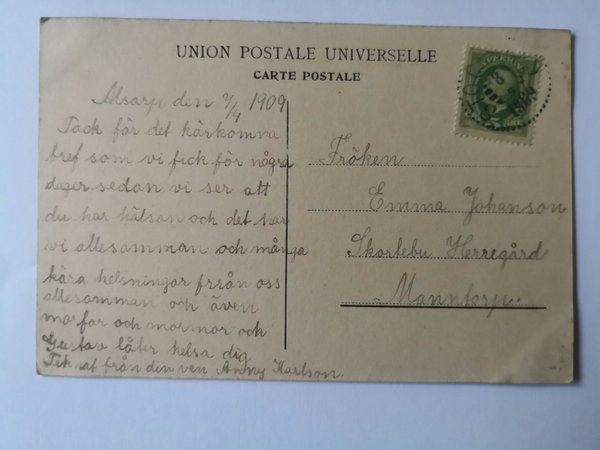 UNION POSTALE UNIVERSELLE
CARTE POSTALE
Alsarp den 7/4 1909
Tack för det kärkomna
bref som vi fick för några
dager sedan vi ser att
du har hälsan och det har
vi allesamman och många
kära helsningar från oss
allesamman och även
morfar och mor.mor och
Gustav låter helsa dig
Teknat från din ven Anny Karlson.
Fröken
Emma Johanson
Skorteby Herregård
Manntorp.